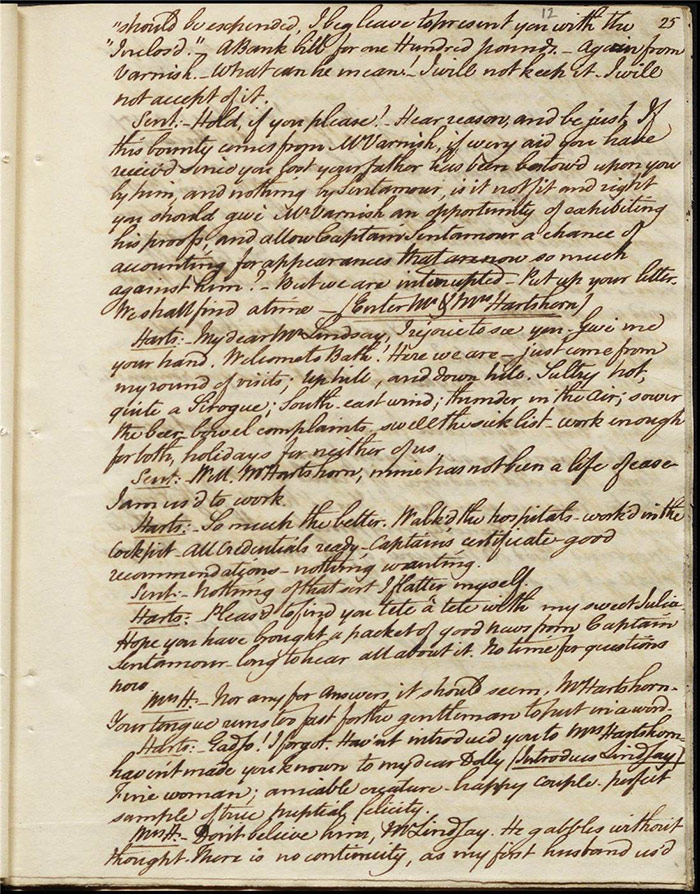 12
25
"should be expended, I beg leave to present you with the
"Inclos'd." A Bank bill for one Hundred pounds. - Again from
Varnish. - What can he mean! - I will not keep it - I will
not accept of it.
Sent: - Hold, if you please! - Hear reason, and be just. If
this bounty comes from Mr Varnish, if every aid you have
receiv'd since you lost your father has been bestow'd upon you
by him, and nothing by Sentamour, is it not fit and right
you should give Mr Varnish an opportunity of exhibiting
his proofs, and allow Captain Sentamour a chance of
accounting for appearances that are now so much
against him? - But we are interrupted - Put up your letter.
We shall find a time - (Enter Mr & Mrs Hartshorn)
Harts: - My dear Mr Lindsay, I rejoice to see you - Give me
your hand. Welcome to Bath! Here we are - just come from
my round of visits; Up hill, and down hill. Sultry hot,
quite a Siroque; South-east wind; thunder in the air; sower
the beer - bowel complaints swell the sick list - work enough
for both, holidays for neither of us
Sent: Well Mr Hartshorn, mine has not been a life of ease
I am us'd to work
Harts: - So much the better. Walk'd the hospitals - work'd in the
Cockpit - All Credentials ready - Captains certificate - good
recommendations - nothing wanting.
Sent: - Nothing of that sort I flatter myself.
Harts: Pleas'd to find you tête à tête with my sweet Julia
Hope you have bought a packet of good news from Captain
Sentamour - long to hear all about it. No time for questions
now
Mrs H: - Nor any for answers, it should seem, Mr Hartshorn -
Your tongue runs too fast for the gentleman to put in a word -
Harts: - Gadso! I forgot. Hav'nt introduc'd you to Mrs Hartshorn -
hav'nt made you known to my dear Dolly (Introduces Lindsay)
Fine woman; amiable creature - happy couple - perfect
sample of true nuptial felicity.
Mrs H: - Don't believe him, Mr Lindsay. He gabbles without
thought. There is no continuity, as my first husband us'd